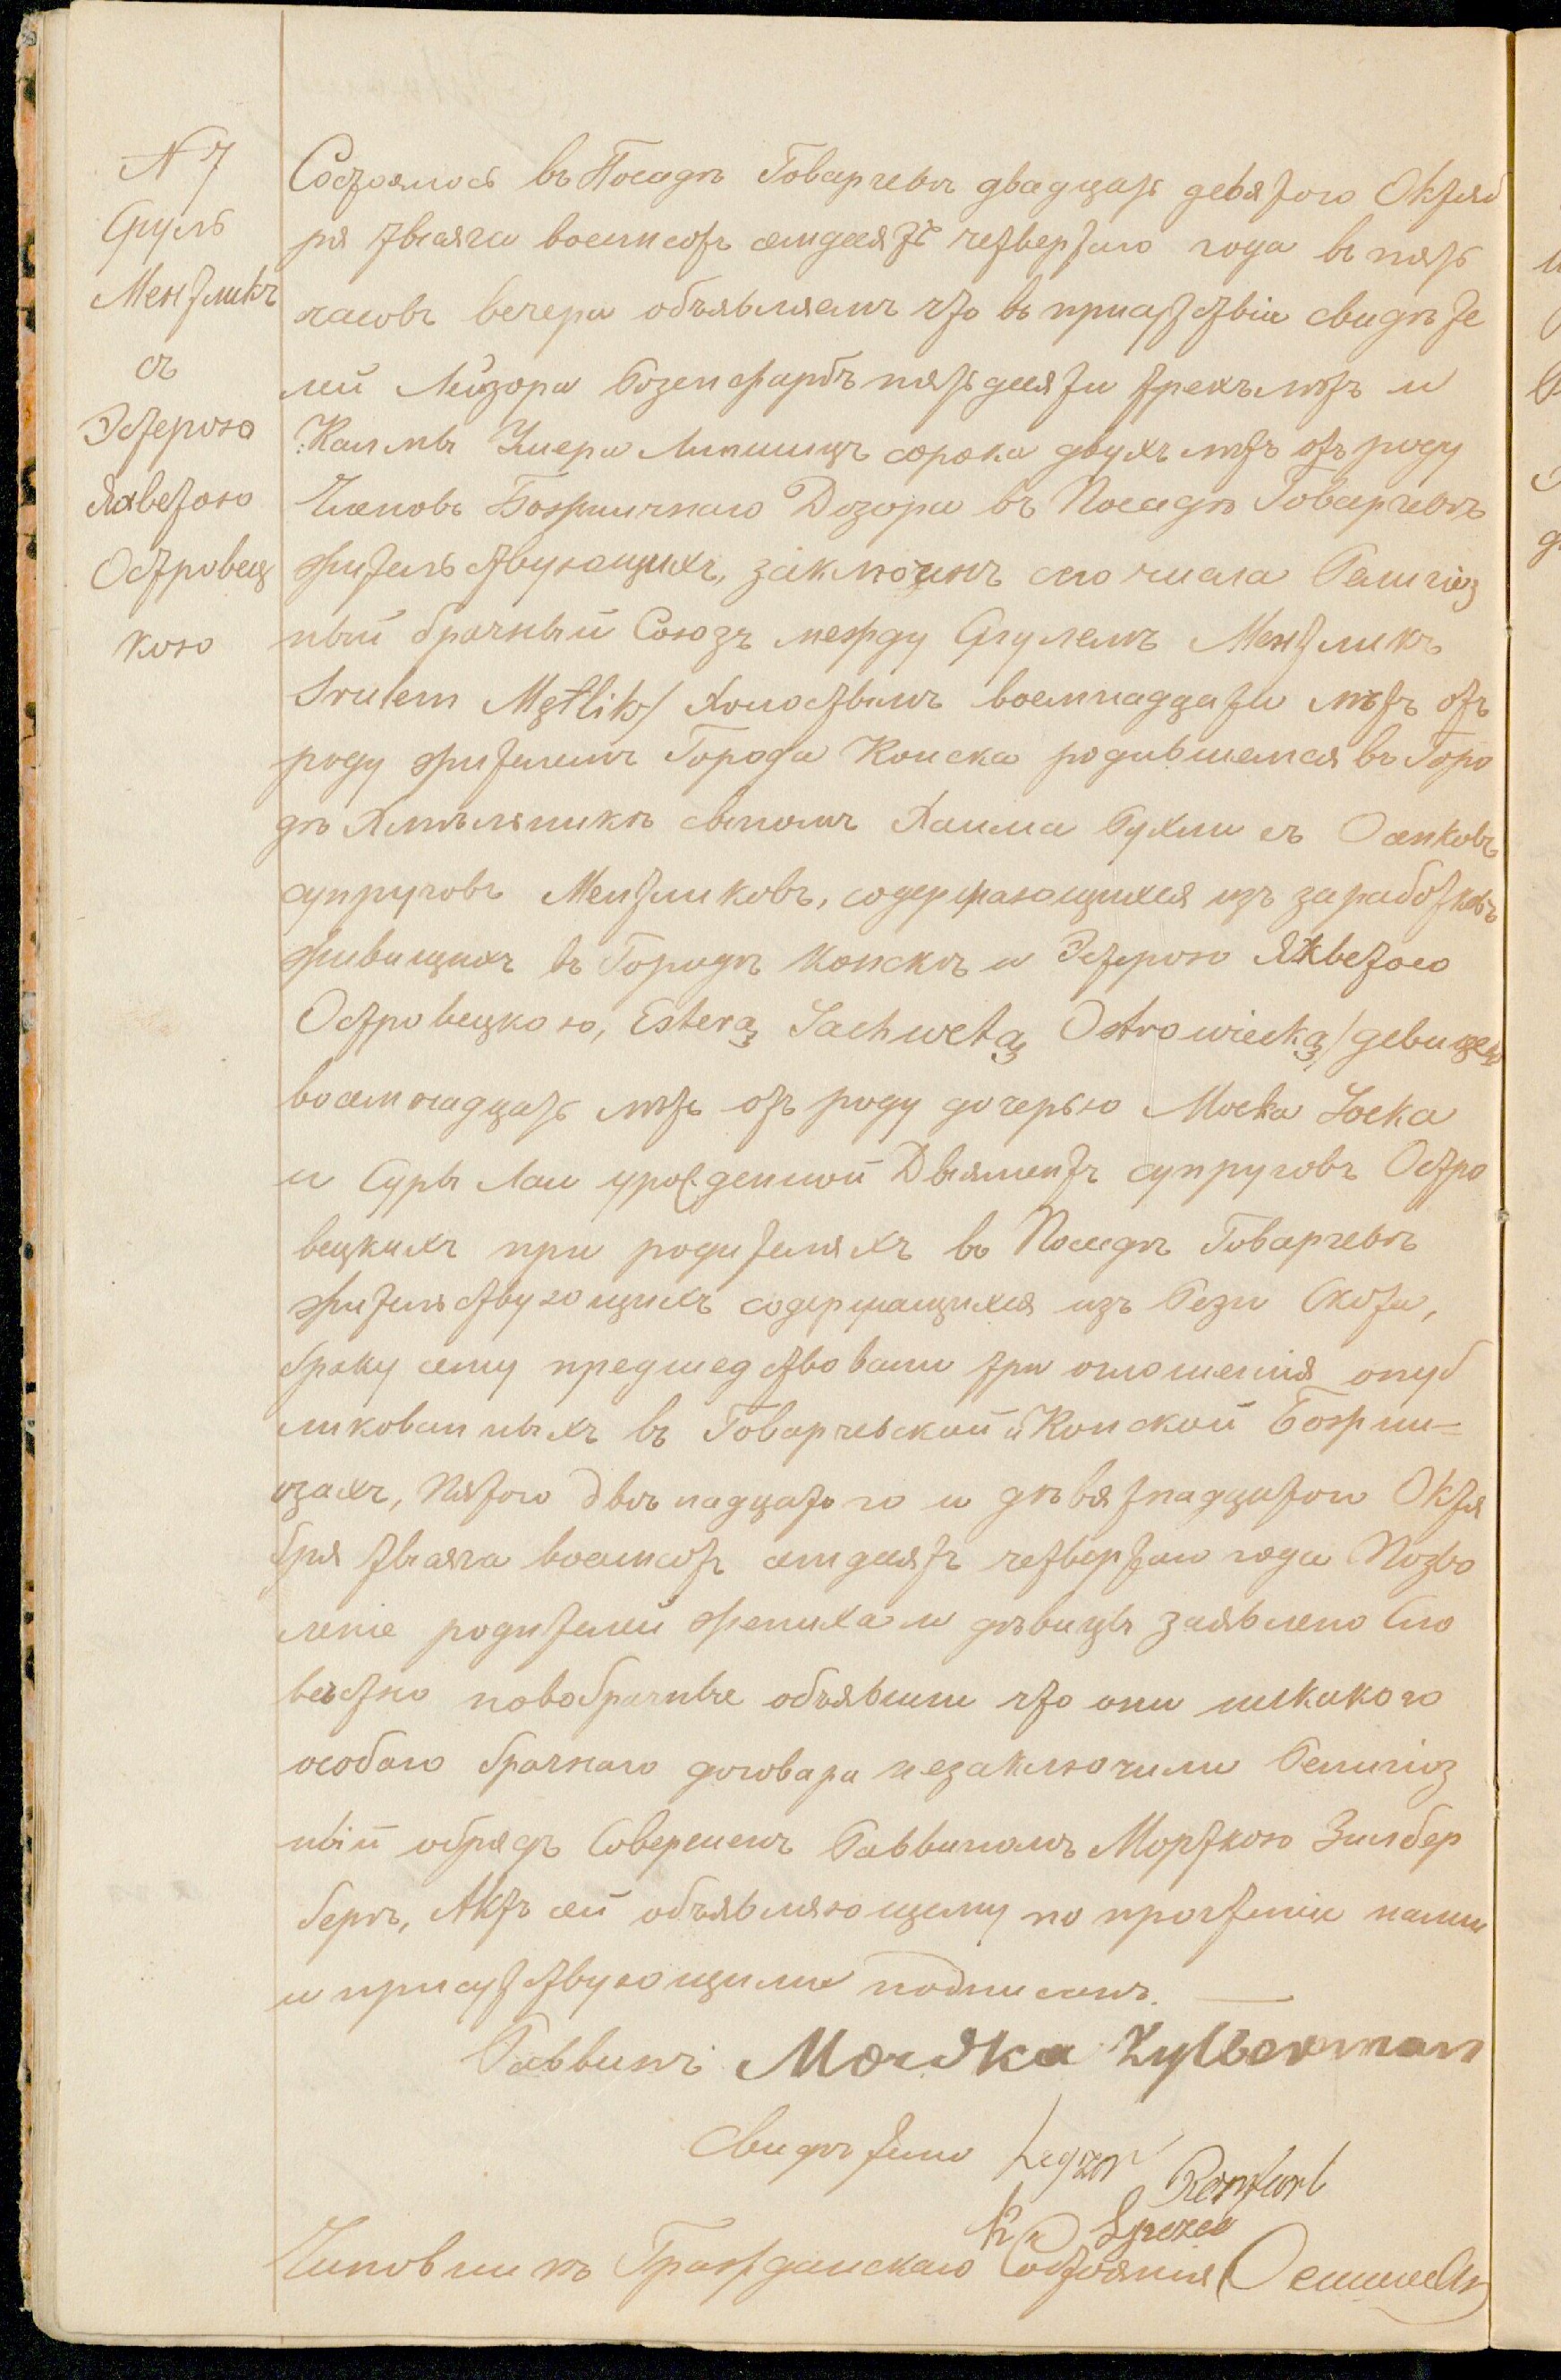 N 7
Сруль
Ментликъ
съ
Эстерою
Яхветою
Островец
кою
Состоялось въ Посадѣ Говарчевѣ двадцать девятого Октяб
ря тысяча восемсотъ семдесятъ четвертаго года въ пять
часовъ вечера объявляемъ что въ присутствіи свидѣте
лей Лейзора Розенфарбъ пятьдесяти трехъ лѣтъ и
Каимы Умера Липшицъ сорока двухъ лѣтъ отъ роду
Членовъ Божничнаго Дозора въ Посадѣ Говарчевѣ
жительствующихъ, заключенъ сего числа Религіоз
ный брачный Союзъ между Срулемъ Ментликъ
Srulem Mętlik/ Холостымъ восемнадцати лѣтъ отъ
роду жителемъ Города Конска родившемся въ Горо
дѣ Хмѣльникѣ сыномъ Хаима Рухли съ Осенковъ
супруговъ Ментликовъ, содержающихся изъ заработковъ
живищихъ въ Городѣ Конскѣ и Эстерою Яхветою
Островецкою, Esterą Jachwetą Ostrowiecką/ девицею
восемнадцать лѣтъ отъ роду дочерью Моска Іоска
и Суры Лаи урожденной Дыяментъ супруговъ Остро
вецкихъ при родителяхъ въ Посадѣ Говарчевѣ
жительствующихъ содержащихся изъ Рези Скота,
браку сему предшедствовали три оглошенія опуб
ликованныхъ въ Говарчевской и Конской Божни-
цахъ, Пятого Двѣнадцатого и дѣвятнадцатого Октя
бря тысяча восемсотъ семдесятъ четвертаго года Позво
леніе родителей жениха и дѣвицы заявлено Сло
вестно новобрачные объявили что они никакого
особаго брачнаго договара незаключили Религіоз
ный обрядъ Совершенъ Раввиномъ Морткою Зильбер
бергъ, Актъ сей объявляющему по прочтеніи нами
и присутствующими подписанъ.
Раввинъ Mordka Zylberman
Свидѣтели Leyzor Rozenfarb
Чиновникъ Гражданскаго Состоянія